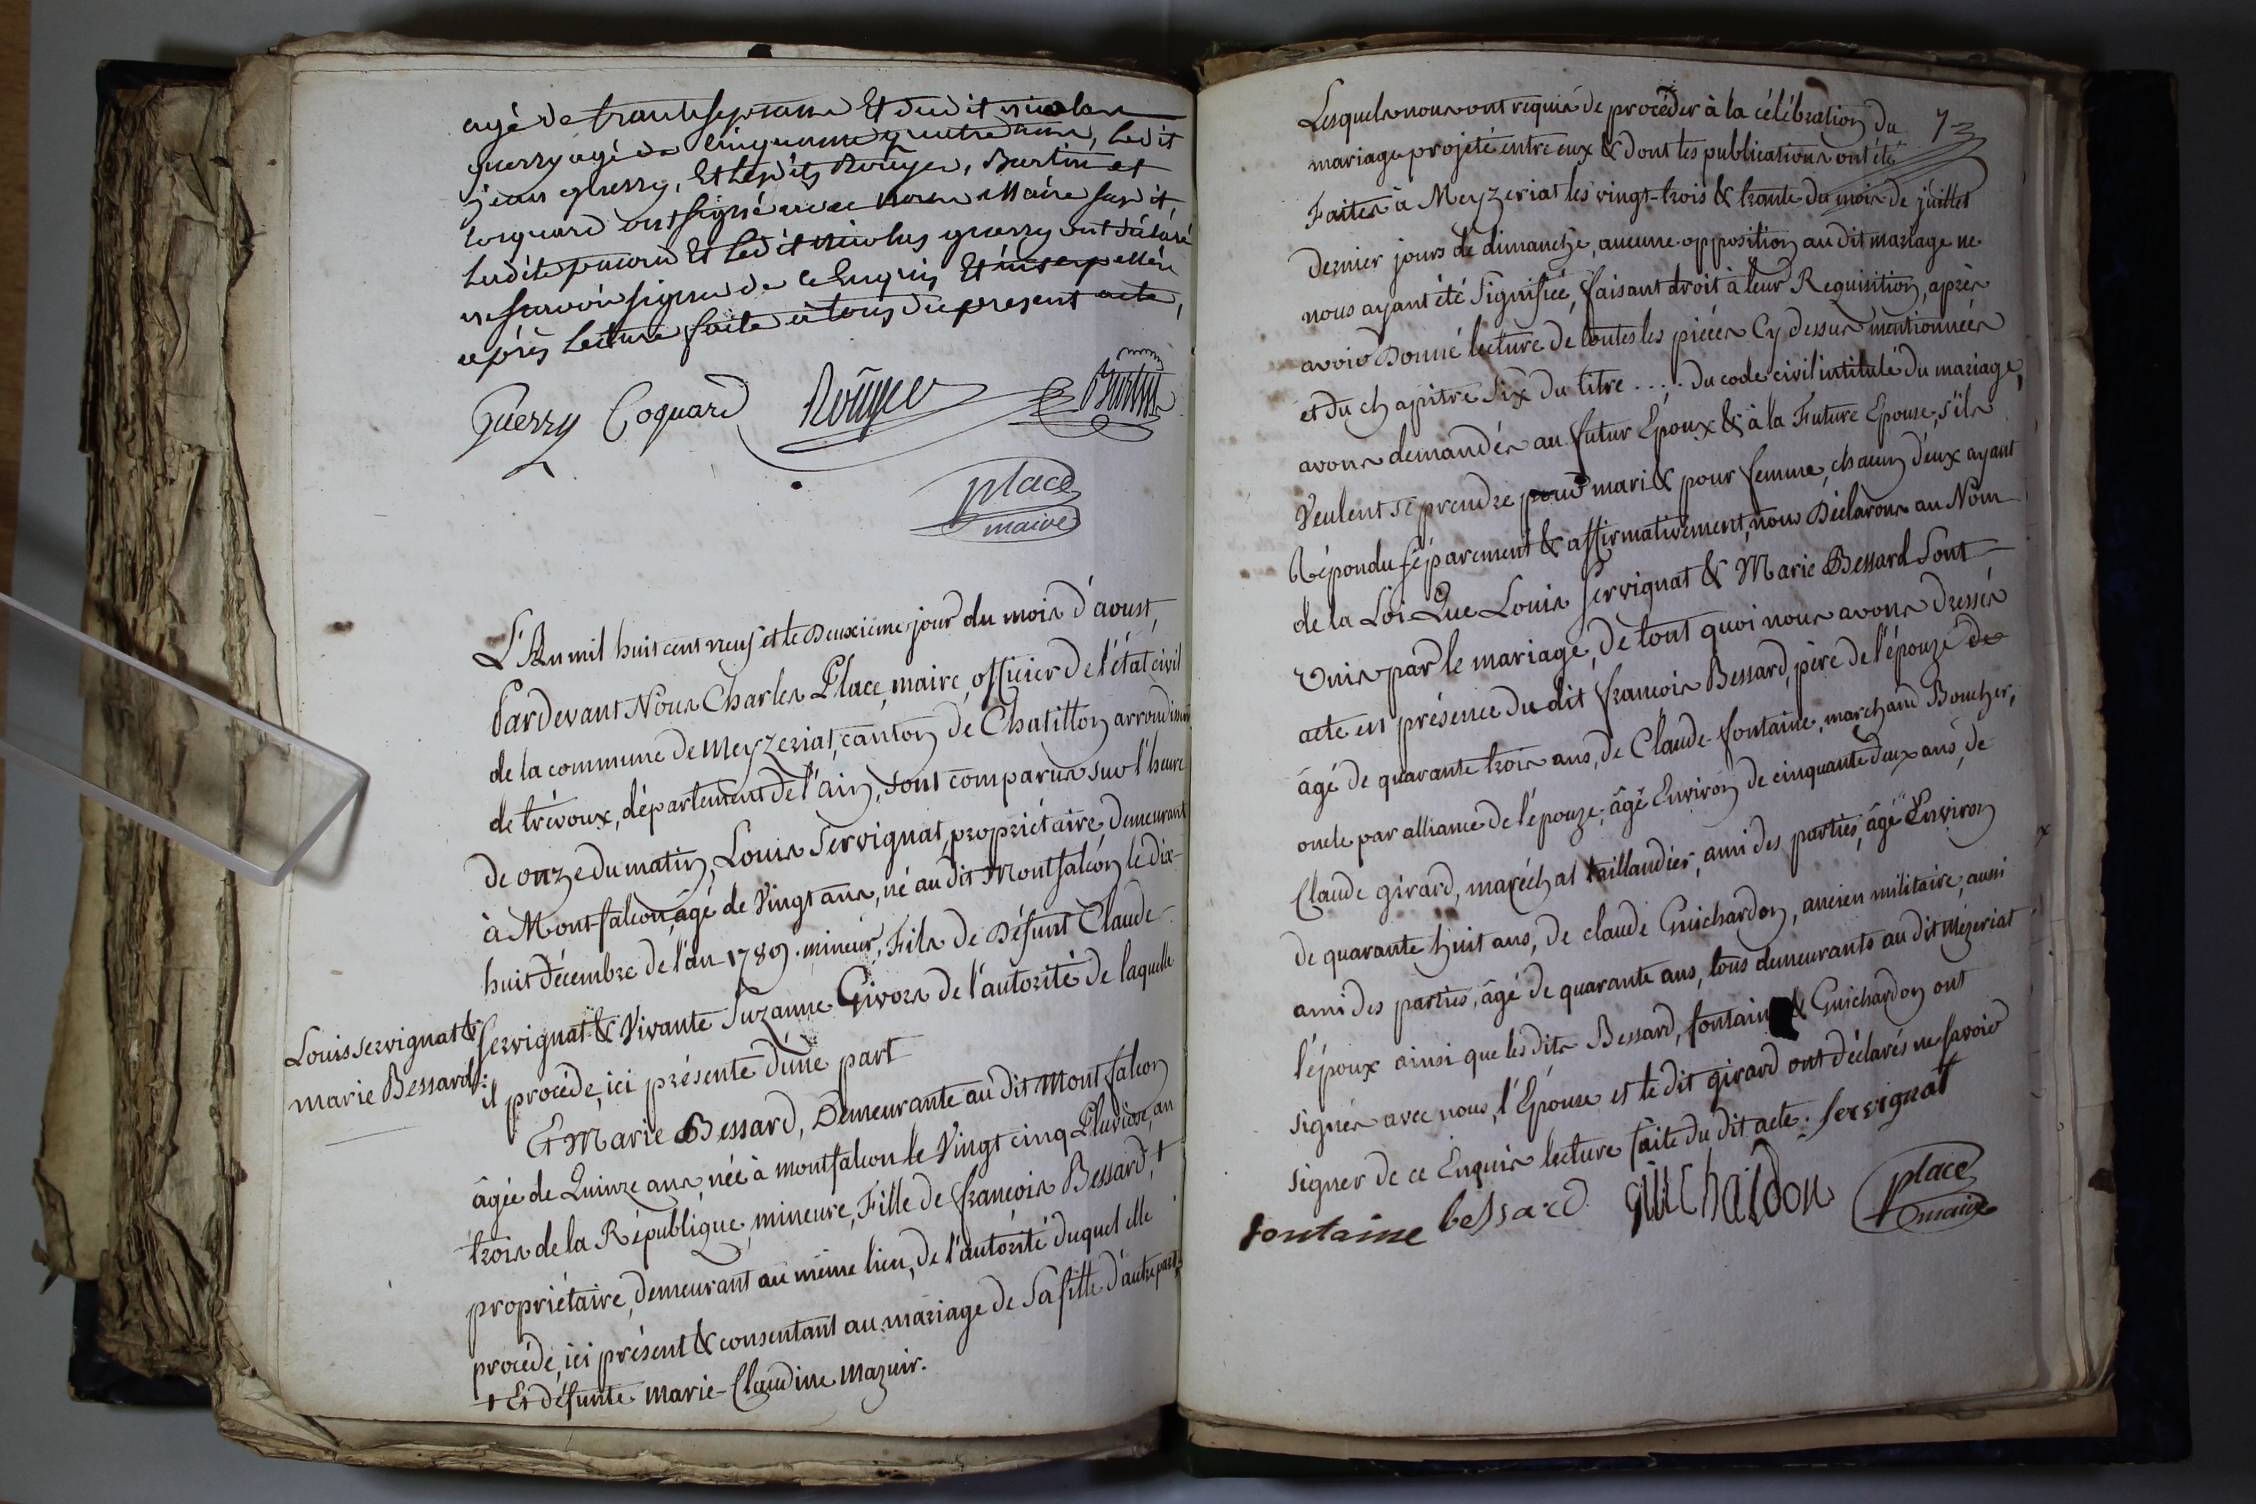 agé de trente sept ans Et du dit nicolas
guerry agé de cinquante quatre ans, Ledit
jean guerry, Et Lesdits Rouyer, Burtin et
Coquard ont signé avec nous Maire susdit,
Et Ledit nicolas guerry ont déclaré
ne savoir signer de ce Enquis Et interpellés
après Lecture faite à tous du present acte,
Guerry Coquard Rouyer Burtin
place
maire
L'An mil huit cent neuf et le Deuxième jour du mois d'aoust,
Pardevant Nous Charles Place, maire, officier de l'état civil
de la commune de Meyzeriat, canton de Chatillon arrondissmt
de trévoux, département de l'ain, sont comparus sur l'heure
de onze du matin, Louis Servignat, propriétaire, Demeurant
à Montfalcon, âgé de Vingt ans, né au dit Montfalcon le dix-
huit Décembre de l'an 1789. mineur, Fils de Défunt Claude
Servignat & Vivante Suzanne Givors de l'autorité de laquelle
il procéde, ici présente d'une part
Louis Servignat &
marie Bessard:
Et Marie Bessard, Demeurante au dit Montfalcon
âgée de Quinze ans, née à montfalcon le Vingt cinq Pluviôse, an
trois de la République, mineure, Fille de françois Bessard, +
propriétaire, demeurant au même lieu, de l'autorité duquel elle
procéde, ici présent & consentant au mariage de Sa fille d'autre part,
+ Et défunte marie-Claudine Mazuir.
7
Lesquels nous ont requis de procéder à la célébration du
mariage projeté entre eux & dont les publications ont été
Faites à Meyzeriat les vingt-trois & trente du mois de juillet
dernier jours de dimanche, aucune opposition au dit mariage ne
nous ayant été Signifiée, faisant droit à leur Requisition, après
avoir Donné lecture de toutes les piéces Cy dessus mentionnées
et du chapitre Six du titre .... du code civil intitulé Du mariage,
avons demandés au futur Epoux & à la Future Epouse, s'ils
Veulent se prendre pour mari & pour femme, chacun d'eux ayant
Répondu séparement & affirmativement, nous Déclarons au Nom
de la Loi Que Louis Servignat & Marie Bessard Sont
Unis par le mariage, De tout quoi nous avons Dressés
acte en présence du dit françois Bessard, père de l'épouze de
âgé de quarante trois ans, de Claude fontaine, marchand Boucher,
oncle par alliance de l'épouze, âgé Environ de cinquante deux ans, de
Claude girard, maréchal taillandier, ami des parties, âgé Environ
de quarante huit ans, de claude Guichardon, ancien militaire, aussi
ami des parties, âgé de quarante ans, tous demeurants au dit Mézeriat
l'époux ainsi que les dits Bessard, fontaine & Guichardon ont
signés avec nous, l'Epouse et le dit girard ont déclarés ne savoir
signer de ce Enquis lecture faite du dit acte. Servignat
fontaine bessard guichardon place
maire